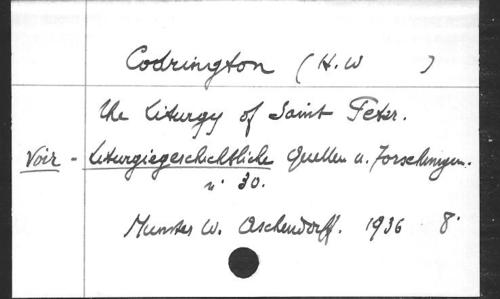 Codrington (H. W )
The Liturgy of Saint Peter.
Voir - Liturgiegeschichtliche Quellen u. Forschungen.
n° 30.
Munster W. Aschendorff. 1936 8°